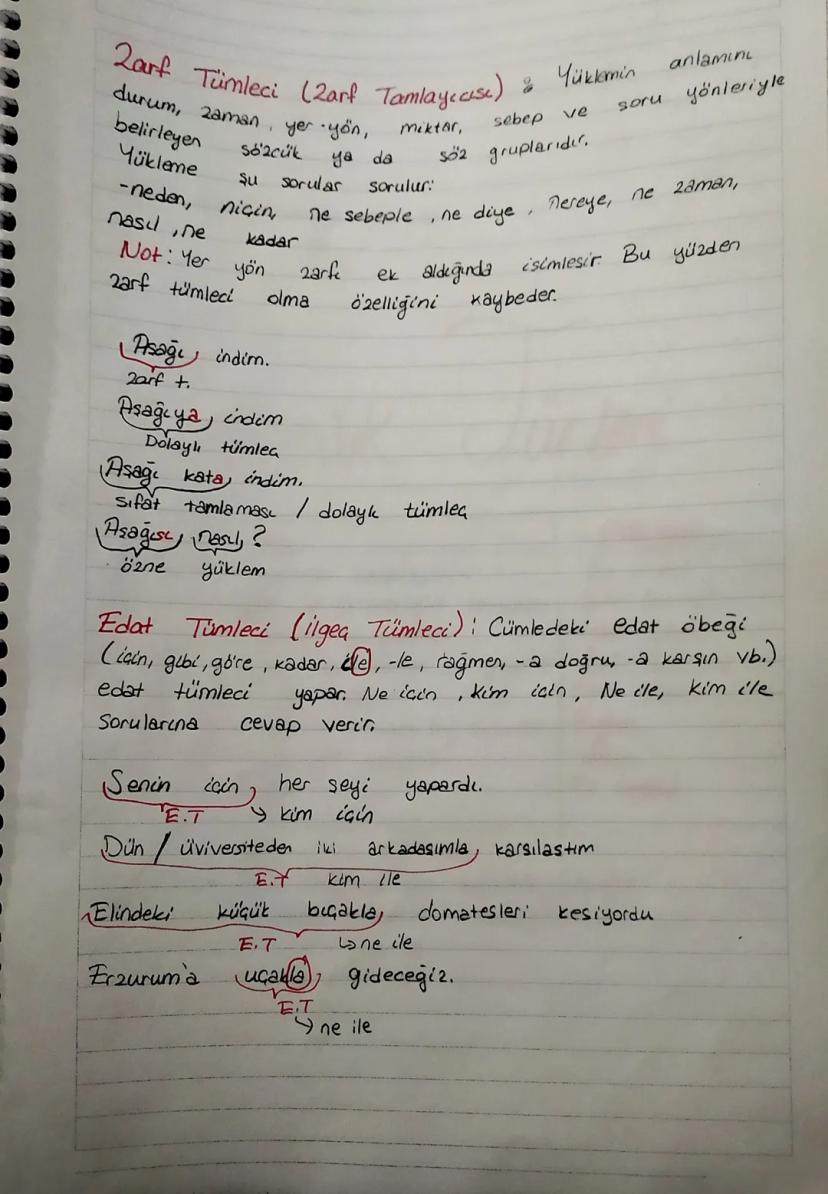 Zarf Tümleci (Zarf Tamlayıcısı) : Yüklemin anlamını
durum, zaman, yer-yön, miktar, sebep ve soru yönleriyle
belirleyen sözcük ya da söz gruplarıdır.
Yükleme şu sorular sorulur:
-neden, niçin, ne sebeple, ne diye, nereye, ne zaman,
nasıl, ne kadar
Not: Yer yön zarfı ek aldığında isimleşir. Bu yüzden
zarf tümleci olma özelliğini kaybeder.
Aşağı, indim.
zarf t.
Aşağıya, indim
Dolaylı tümleç
Aşağı kata, indim.
sıfat tamlaması / dolaylı tümleç
Aşağısı, nasıl, ?
özne yüklem
Edat Tümleci (İlgeç Tümleci): Cümledeki edat öbeği
(için, gibi, göre, kadar, ile, -le, rağmen, -a doğru, -a karşın vb.)
edat tümleci yapar. Ne için, kim için, Ne ile, kim ile
sorularına cevap verir.
Senin için, her şeyi yapardı.
E.T → kim için
Dün / üviversiteden iki arkadaşımla, karşılaştım
E.T kim ile
Elindeki küçük bıçakla, domatesleri kesiyordu
E.T ↳ne ile
Erzurum'a uçakla, gideceğiz.
E.T
→ ne ile